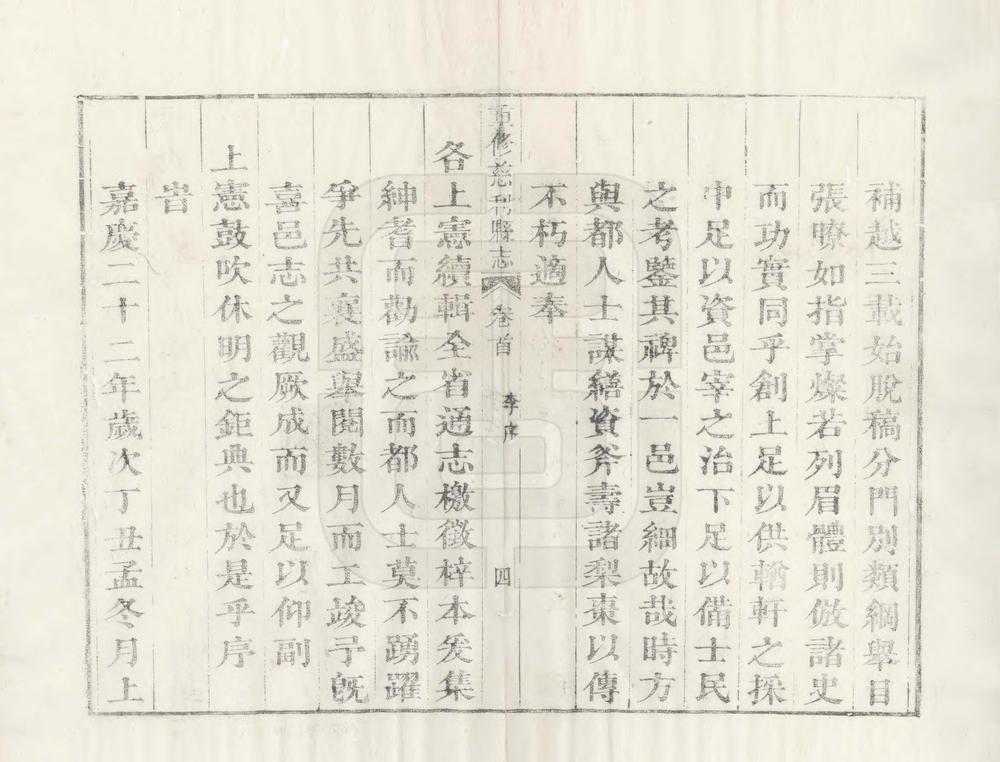 補越三載始脫稿分門別類綱舉目
張暸如指掌燦若列眉體則倣諸史
而功實同乎創上足以供輶軒之採
中足以資邑宰之治下足以備士民
之考鑒其裨於一邑豈細故哉時方
與都人士謀繕資斧壽諸梨棗以傳
不朽適奉
重修慈利縣志 卷首 李序 四
各上憲續輯全省通志檄徵梓本爰集
紳耆而勸諭之而都人士莫不踴躍
爭先共襄盛舉閱數月而工竣予既
喜邑志之觀厥成而又足以仰副
上憲鼓吹休明之鉅典也於是乎序
旹
嘉慶二十二年歲次丁丑孟冬月上